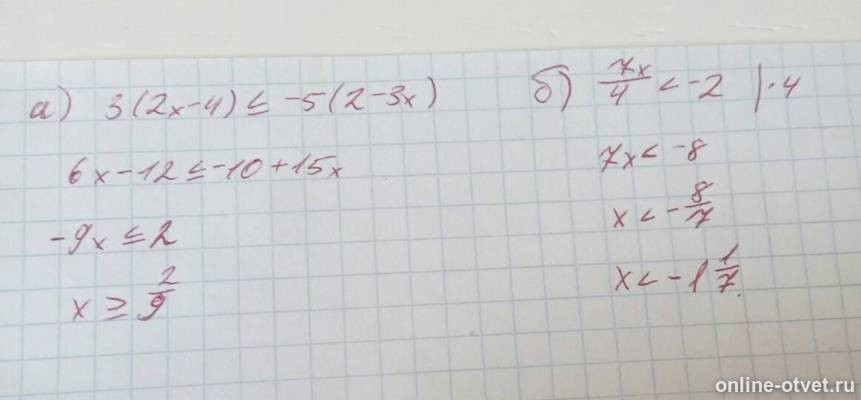 а) 3(2x-4) ≤ -5(2-3x)
6x-12 ≤ -10+15x
-9x ≤ 2
x ≥ 2/9
б) 7x/4 < -2 |·4
7x < -8
x < -8/7
x < -1 1/7.
online-otvet.ru